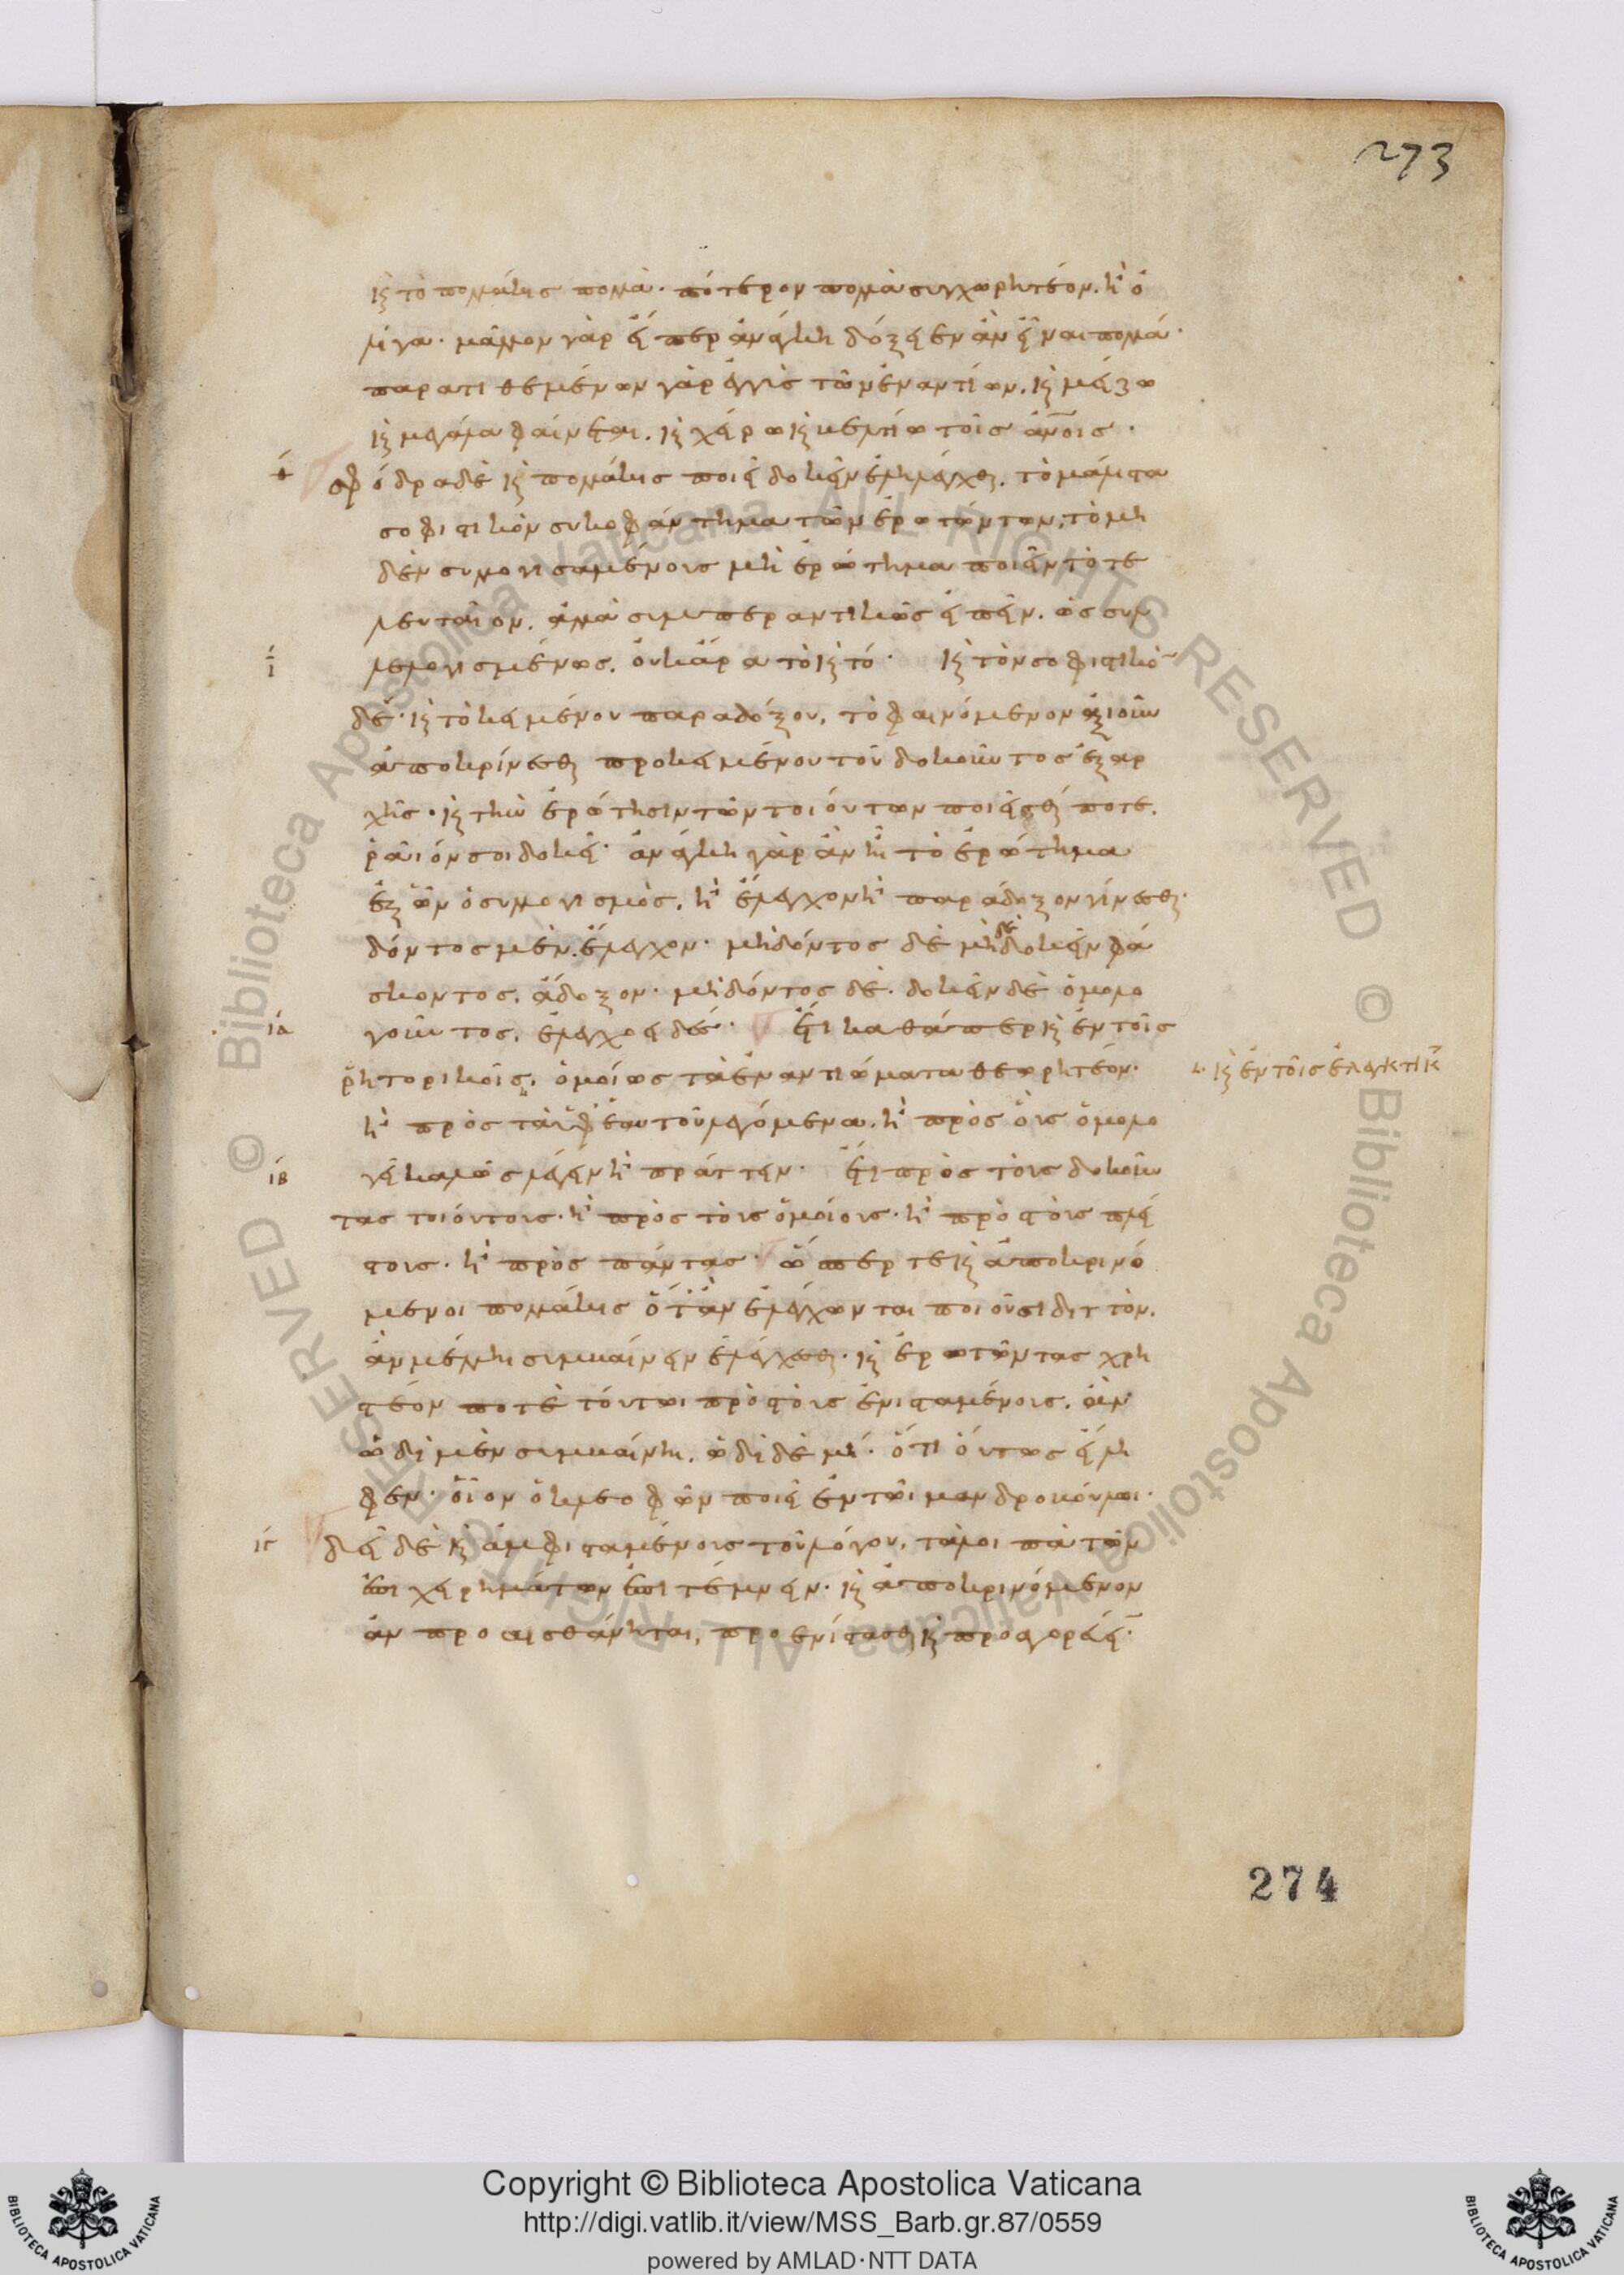 273
κ(αὶ) τὸ πολλάκις πολλά· πότερον πολλὰ συγχωρητέον. ἢ ὀ
λίγα· μᾶλλον γὰρ εἴπερ ἀνάγκη δόξειεν ἂν εἶναι πολλά·
παρατιθεμένων γὰρ ἐγγὺς τῶν ἐναντίων. κ(αὶ) μείζω
κ(αὶ) μεγάλα φαίνεται. κ(αὶ) χείρω κ(αὶ) βελτίω τοῖς ἀνοις·
σφόδρα δὲ κ(αὶ) πολλάκις ποιεῖ δοκεῖν ἐληλέγχθαι. τὸ μάλιστα
σοφιστικὸν συκοφάντημα τῶν ἐρωτώντων. τὸ μη
δὲν συλλογισαμένους μὴ ἐρώτημα ποιεῖν τὸ τε
λευταῖον. ἀλλὰ συμπεραντικῶς εἰπεῖν. ὡς συλ
ί λελογισμένως. οὐκ ἄρα τὸ κ(αὶ) τό· κ(αὶ) τὸν σοφιστικὸ
δέ· κ(αὶ) τὸ κειμένου παραδόξου, τὸ φαινόμενον ἀξιοῦν
ἀποκρίνεσθαι προκειμένου τοῦ δοκοῦντος ἐξ ἀρ
χῆς· κ(αὶ) τὴν ἐρώτησιν τῶν τοιούτων ποιεῖσθαι ποτε.
ρά ιόν σοι δοκεῖ· ἀνάγκη γὰρ ἂν ἦ τὸ ἐρώτημα
ἐξ ὧν ὁ συλλογισμός. ἢ ἔλεγχον ἢ παράδοξον γίνεσθαι·
δόντος μὲν. ἔλεγχον· μὴ δόντος δὲ μὴ δὲ δοκεῖν φά
σκοντος. ἄδοξον· μὴ δόντος δὲ. δοκεῖν δὲ ὁμολο
ια γοῦντος. ἐλεγχοειδές· ἔτι καθάπερ κ(αὶ) ἐν τοῖς
ῥητορικοῖς. ὁμοίως τὰ ἐναντιώματα θεωρητέον· κ(αὶ) ἐν τοῖς ἐλεγκτικ
ἢ πρὸς τὰ ὑφ' ἑαυτοῦ λεγόμενα. ἢ πρὸς οὓς ὁμολο
ιβ γεῖ καλῶς λέγειν ἢ πράττειν· ἔτι πρὸς τοὺς δοκοῦν
τας τοιούτους· ἢ πρὸς τοὺς ὁμοίους· ἢ πρὸς τοὺς πλεί
στους· ἢ πρὸς πάντας· ὥσπερ τε κ(αὶ) ἀποκρινό
μενοι πολλάκις ὅταν ἐλέγχωνται ποιοῦσι διττὸν.
ἂν μέλλη συμβαίνειν ἐλέγχεσθαι· κ(αὶ) ἐρωτῶντας χρη
στέον ποτὲ τούτωι πρὸς τοὺς ἐνισταμένους. ἂν
ὡδὶ μὲν συμβαίνη. ὡδὶ δὲ μή· ὅτι οὕτως εἴλη
φεν· οἷον ὁ κλεοφῶν ποιεῖ ἐν τῶι μανδροβούλωι·
ιγ δεῖ δὲ κ(αὶ) ἀμφισταμένους τοῦ λόγου. τὰ λοι πὰ τῶν
ἐπιχειρημάτων ἐπιτέμνειν· κ(αὶ) ἀποκρινόμενον
ἂν προαισθάνηται, προενίστασθαι κ(αὶ) προαγορεύει
274
Copyright © Biblioteca Apostolica Vaticana
http://digi.vatlib.it/view/MSS_Barb.gr.87/0559
powered by AMLAD·NTT DATA